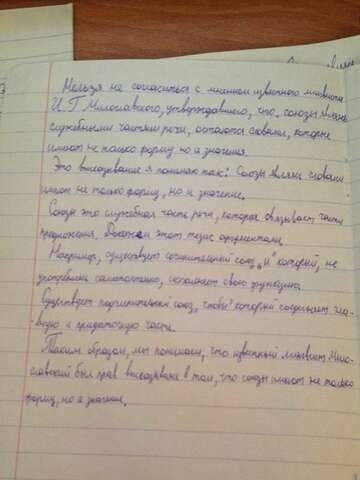 Нельзя не согласиться с мнением известного лингвиста
И.Г Милославского, утверждавшего, что союзы являясь
служебными частями речи, остаются словами, которые
имеют не только форму но и значения.
Это высказывание я понимаю так: Союзы являясь словами
имеют не только форму, но и значение.
Союзы это служебная часть речи, которая связывает части
предложения. этот тезис аргументами.
Например, существует сочинительный союз "и" который, не
употребляясь самостоятельно, исполняет свою функцию.
Существует подчинительный союз "чтобы" который соединяет гла-
вную и придаточную части.
Таким образом, мы понимаем, что известный лингвист Мило-
славский был прав высказывая в том, что союзы имеют не только
форму, но и значение.